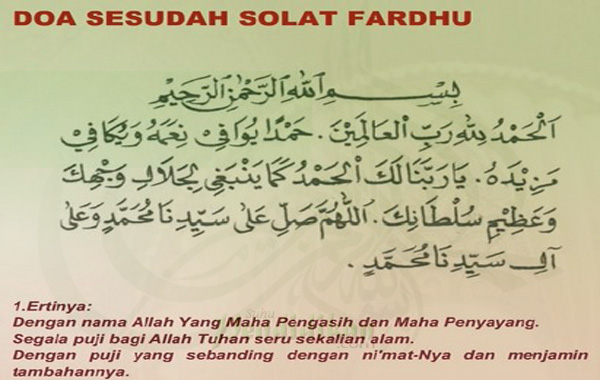 DOA SESUDAH SOLAT FARDHU
بِسْمِ اللهِ الرَّحْمٰنِ الرَّحِيْمِ
اَلْحَمْدُ لِلّٰهِ رَبِّ الْعَالَمِيْنَ . حَمْدًا يُوَافِيْ نِعَمَهُ وَيُكَافِيْ
مَزِيْدَهُ . يَا رَبَّنَا لَكَ الْحَمْدُ كَمَا يَنْبَغِيْ لِجَلَالِ وَجْهِكَ
وَعَظِيْمِ سُلْطَانِكَ . اَللّٰهُمَّ صَلِّ عَلَى سَيِّدِنَا مُحَمَّدٍ وَعَلَى
آلِ سَيِّدِنَا مُحَمَّدٍ .
1.Ertinya:
Dengan nama Allah Yang Maha Pengasih dan Maha Penyayang.
Segala puji bagi Allah Tuhan seru sekalian alam.
Dengan puji yang sebanding dengan ni'mat-Nya dan menjamin
tambahannya.